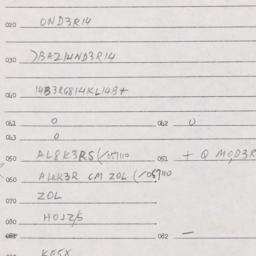 020 OND3R14
030 )BAZ14ND3R14
040 14B3RG814KL14B+
041 0 042 0
043 0
050 AL8K3RS(/057110 051 + Q MOD3R
060 ALKK3R CM ZOL (/057110
070 ZOL
080 HOJZ/5
082 —
KE5X